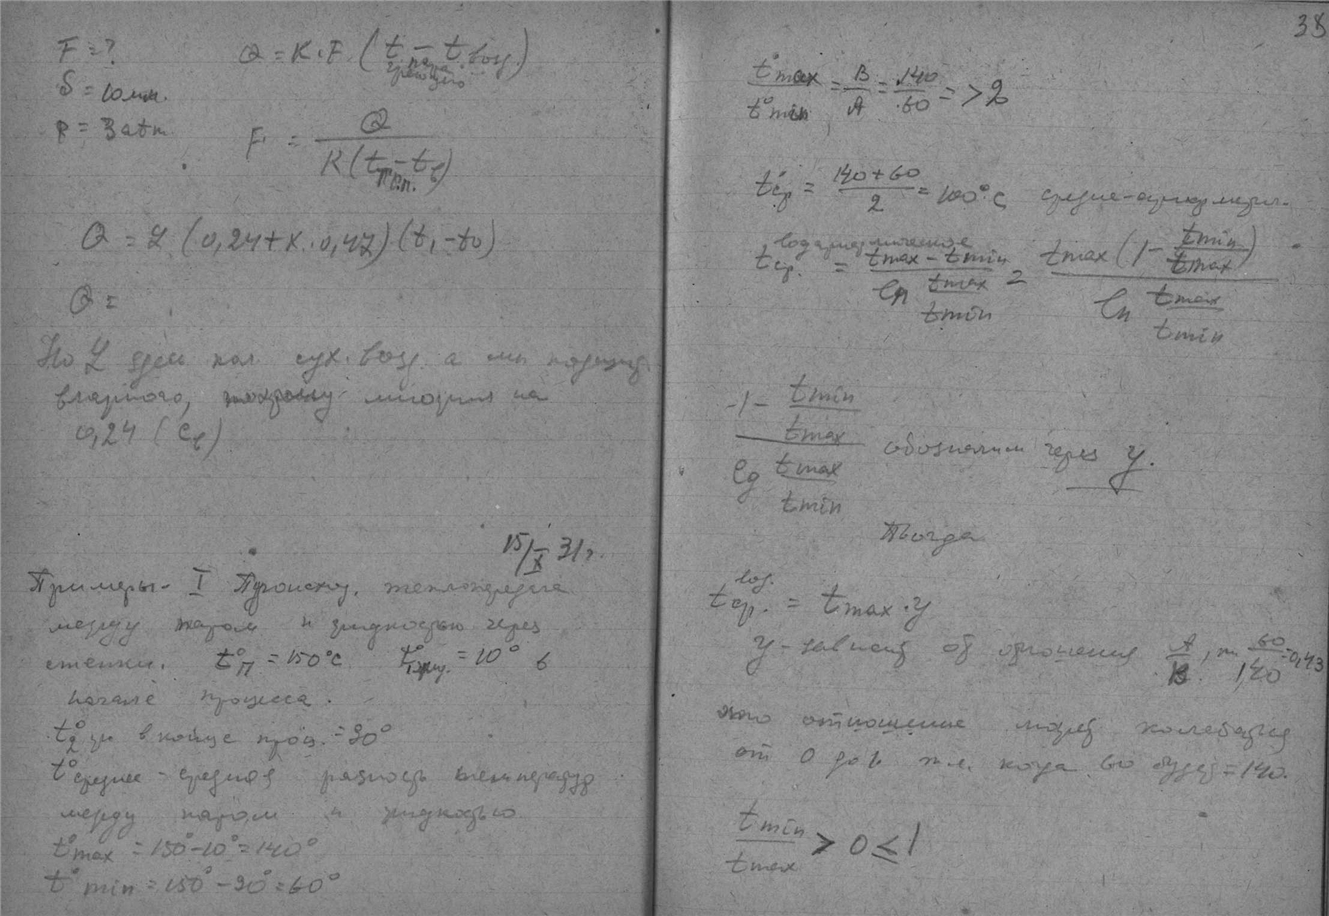 F = ?
Q = K·F·(t пара греющего − t воз.)
δ = 10 мм.
p = 3 atm
F = Q / K(t гр.п. − t в)
Q = L (0,24 + x·0,47)(t₁ − t₀)
Q =
Но L здесь кол. сух. возд. а мы
влажного, множим на
0,24 (Cв)
15/X 31 г.
Примеры - I Происход. теплопередача
между паром и жидкостью через
стенки. t°п = 150°C t°1 жид. = 10° в
начале процесса.
t°2 ж в конце проц. = 90°
t° среднее - средняя разность температур
между паром и жидкостью
t°max = 150° - 10° = 140°
t°min = 150° - 90° = 60°
38
t°max / t°min = B/A = 140/60 = > 2
t°ср = (140 + 60)/2 = 100°C средне-арифметич.
t ср. логарифмическое = (tmax - tmin) / (ln tmax/tmin) = tmax(1 - tmin/tmax) / (ln tmax/tmin)
(1 - tmin/tmax) / (lg tmax/tmin) обозначим через y.
Тогда
t ср. лог. = tmax·y
y - зависит от отношения A/B, т. 60/140 = 0,43
это отношение может колебаться
от 0 до 1 т.е. когда 60 будет = 140.
tmin/tmax > 0 ≤ 1